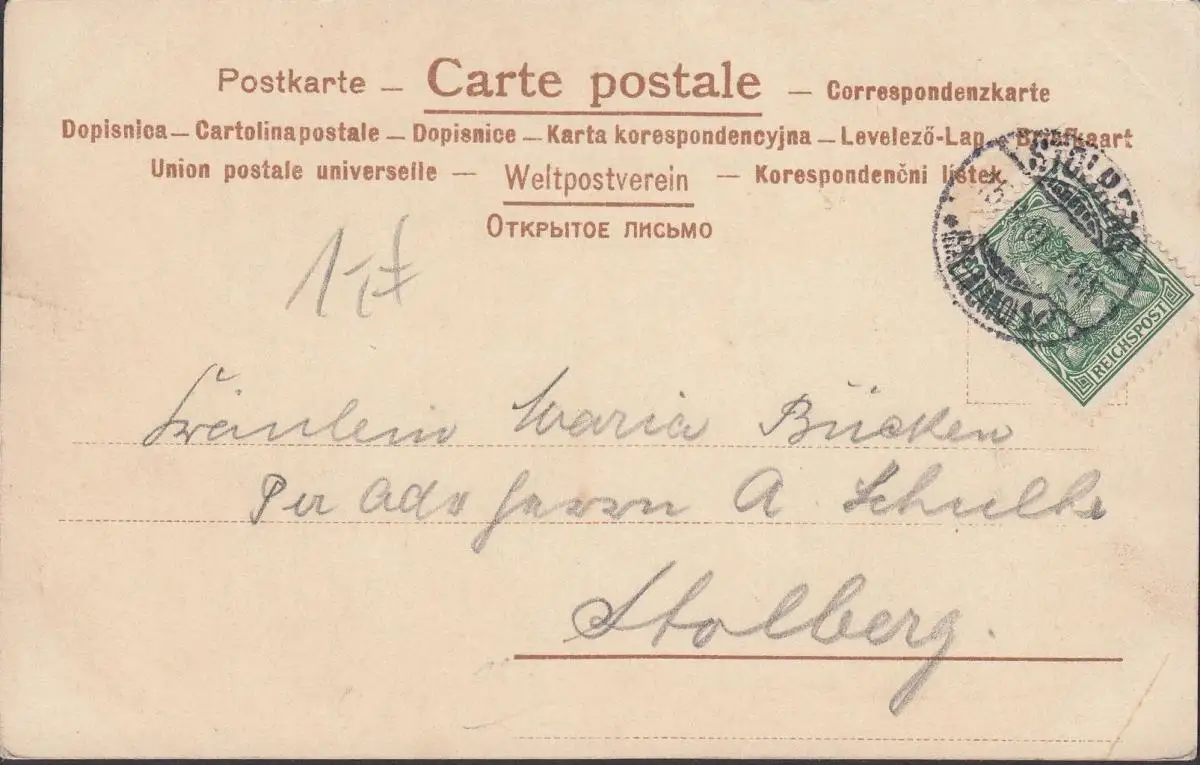 Postkarte – Carte postale – Correspondenzkarte
Dopisnica – Cartolina postale – Dopisnice – Karta korespondencyjna – Levelező-Lap – Briefkaart
Union postale universelle – Weltpostverein – Korespondenčni lístek
Открытое письмо
Fräulein Maria Bücken
Per Adr Herrn A. Schulte
Stolberg.
REICHSPOST